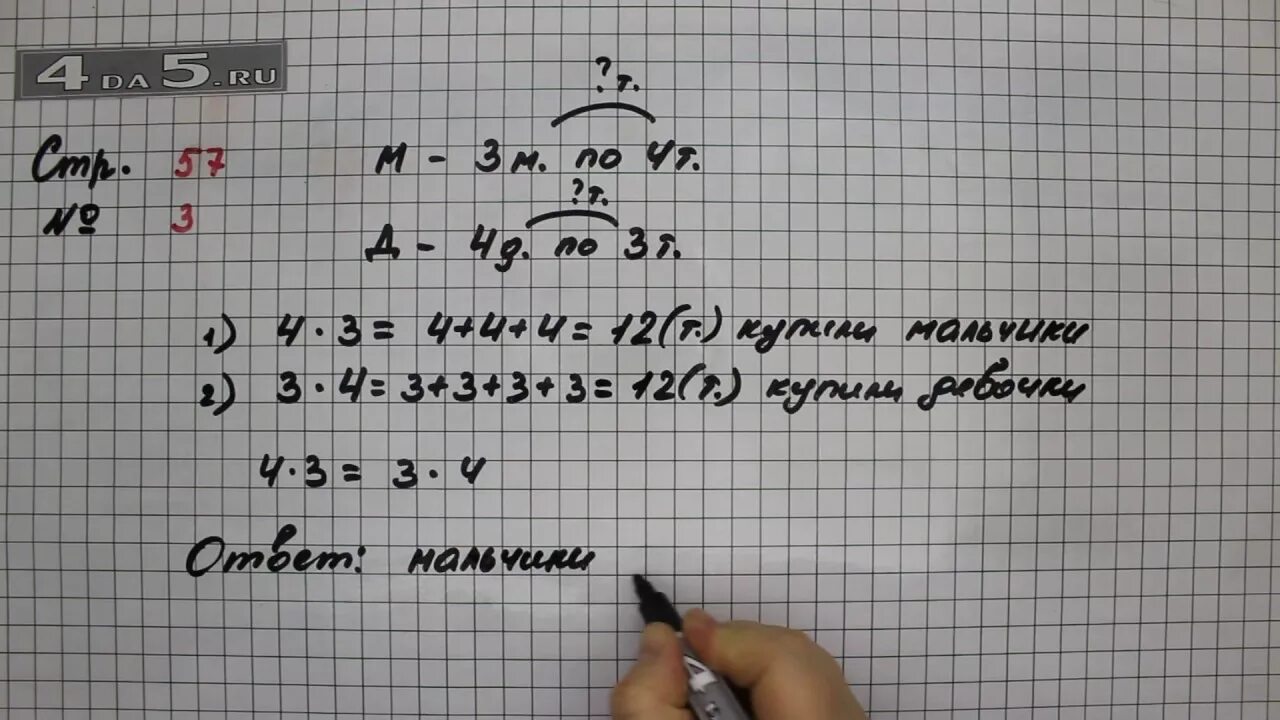 4DA5.RU
?т.
Стр. 57 М - 3 м. по 4 т.
?т.
№ 3 Д - 4 д. по 3 т.
1) 4 · 3 = 4+4+4 = 12 (т.) купили мальчики
2) 3 · 4 = 3+3+3+3 = 12 (т.) купили девочки
4·3 = 3·4
Ответ: мальчики